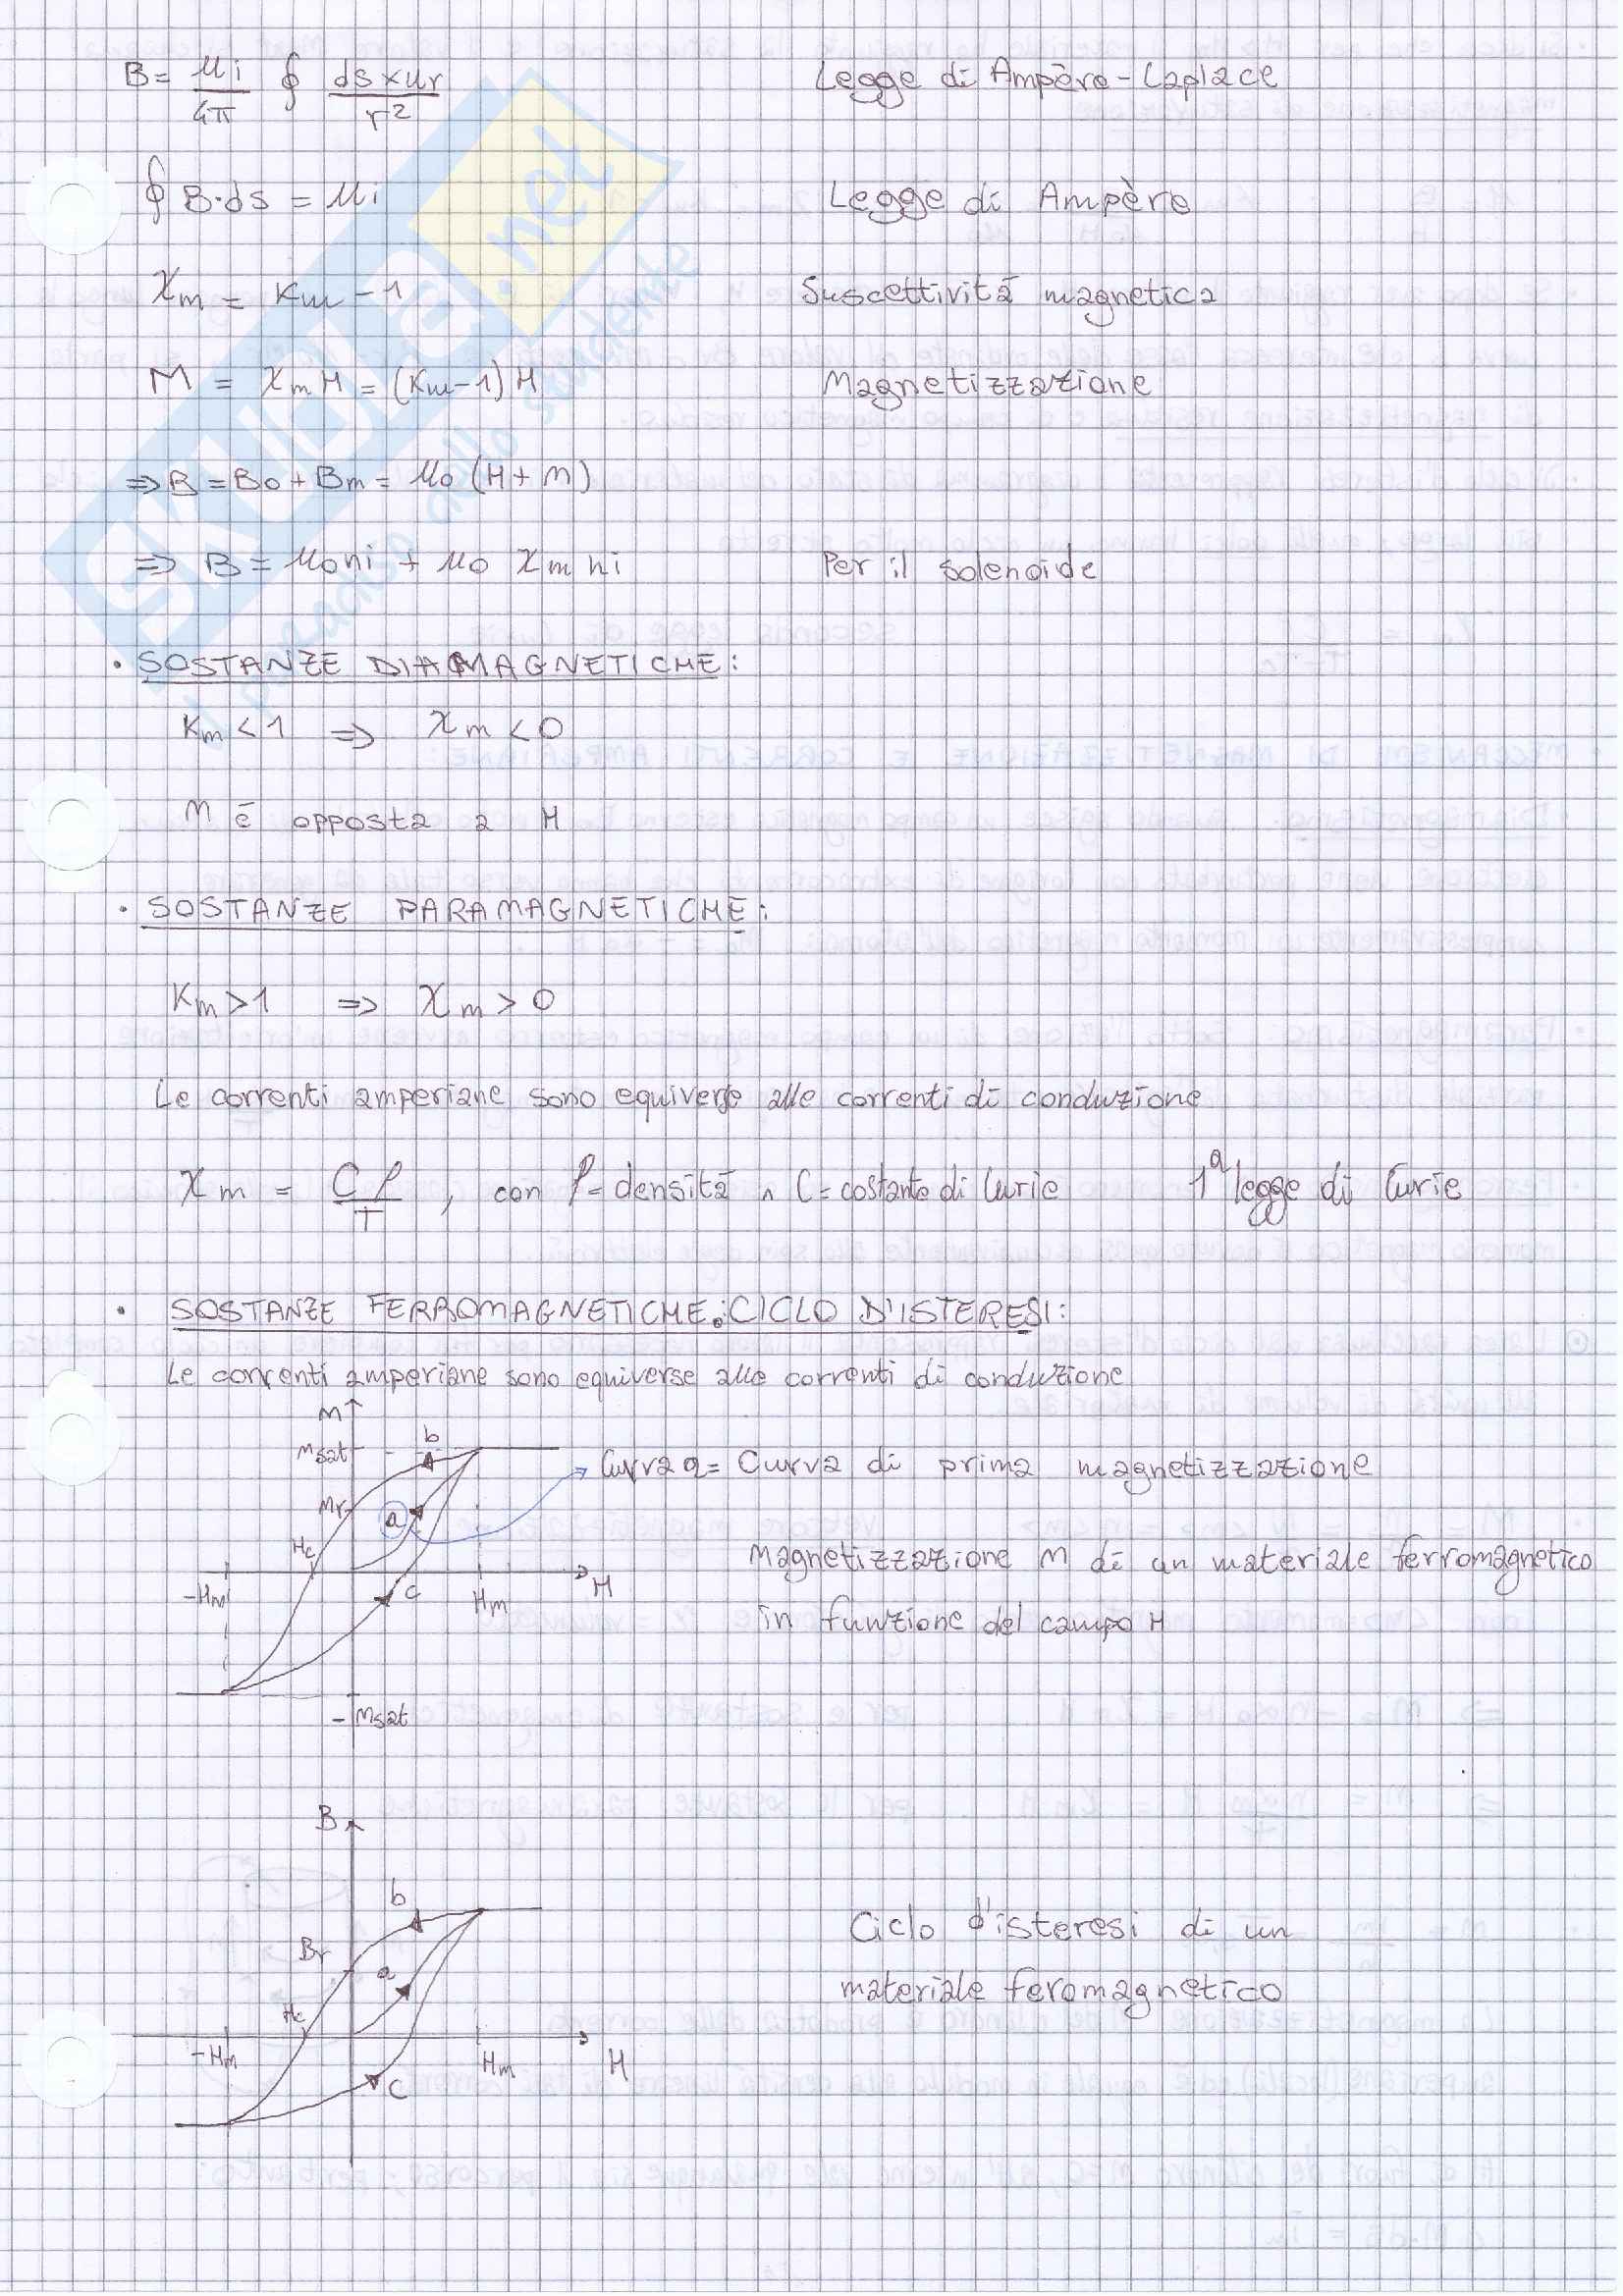 B = μi/4π ∮ ds×ur/r² Legge di Ampère-Laplace
∮ B·ds = μi Legge di Ampère
χm = κm - 1 Suscettività magnetica
M = χm H = (κm-1) H Magnetizzazione
⇒ B = B0 + Bm = μ0 (H + M)
⇒ B = μ0 n i + μ0 χm n i Per il solenoide
• SOSTANZE DIAMAGNETICHE:
κm < 1 ⇒ χm < 0
M è opposta a H
• SOSTANZE PARAMAGNETICHE:
κm > 1 ⇒ χm > 0
Le correnti amperiane sono equiverse alle correnti di conduzione
χm = Cρ/T , con ρ = densità ∧ C = costante di Curie 1ª legge di Curie
• SOSTANZE FERROMAGNETICHE: CICLO D'ISTERESI:
Le correnti amperiane sono equiverse alle correnti di conduzione
M
Msat
b
Mr
a
Hc
-Hm
c
Hm
H
-Msat
Curva a = Curva di prima magnetizzazione
Magnetizzazione M di un materiale ferromagnetico
in funzione del campo H
B
b
Br
a
Hc
-Hm
Hm
H
c
Ciclo d'isteresi di un
materiale feromagnetico
SKUOLA.net
il paradiso dello studente